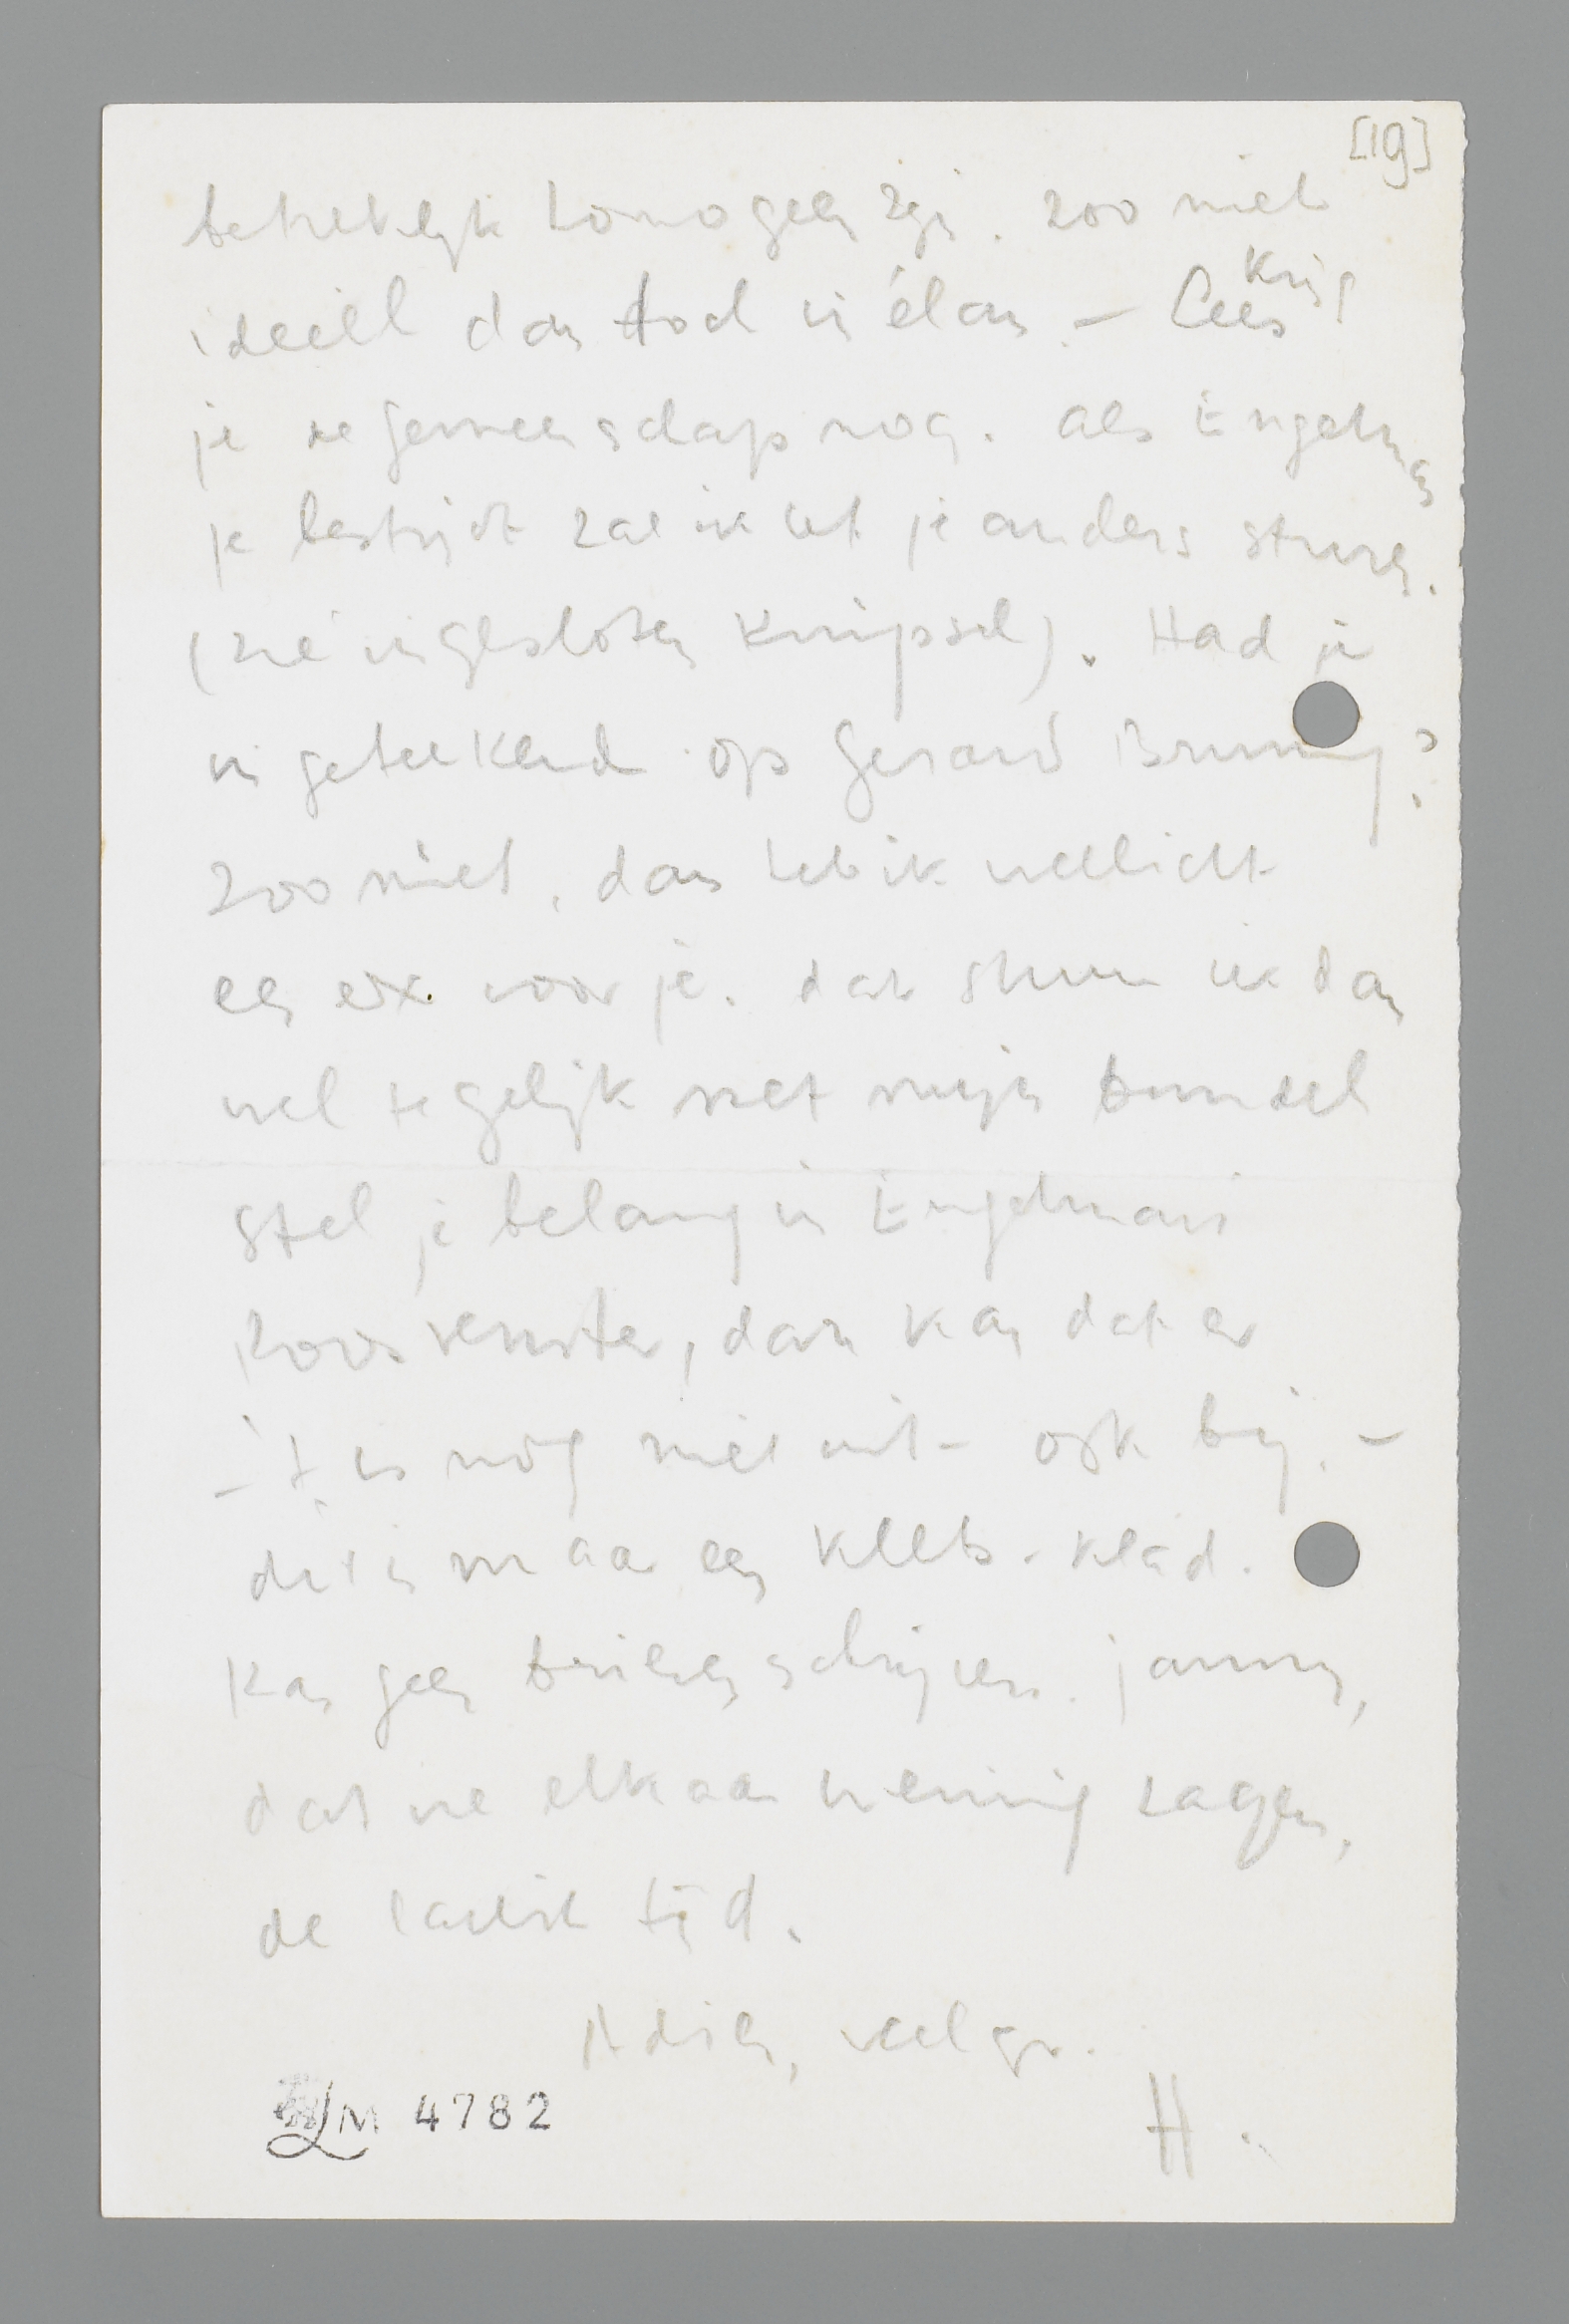 [19]
betrekkelijk homogeen zijn. zoo niet
ideëel dan toch in élan. – Lees
Krijg
je de gemeenschap nog. Als Engelman
je bestrijdt zal ik het je anders sturen.
(zie ingesloten knipsel). Had je
ingeteekend op Gerard Bruning?
Zoo niet, dan heb ik wellicht
een ex. voor je. dat stuur ik dan
wel tegelijk met mijn bundel
Stel je belang in Engelmans
Roosvenster, dan kan dat er
– 't is nog niet uit – ook bij. –
dit is maar een klets-klad.
Kan geen brieven schrijven. jammer,
dat we elkaar weinig zagen,
de laatste tijd.
Adieu, veel gr.
H.
LM 4782